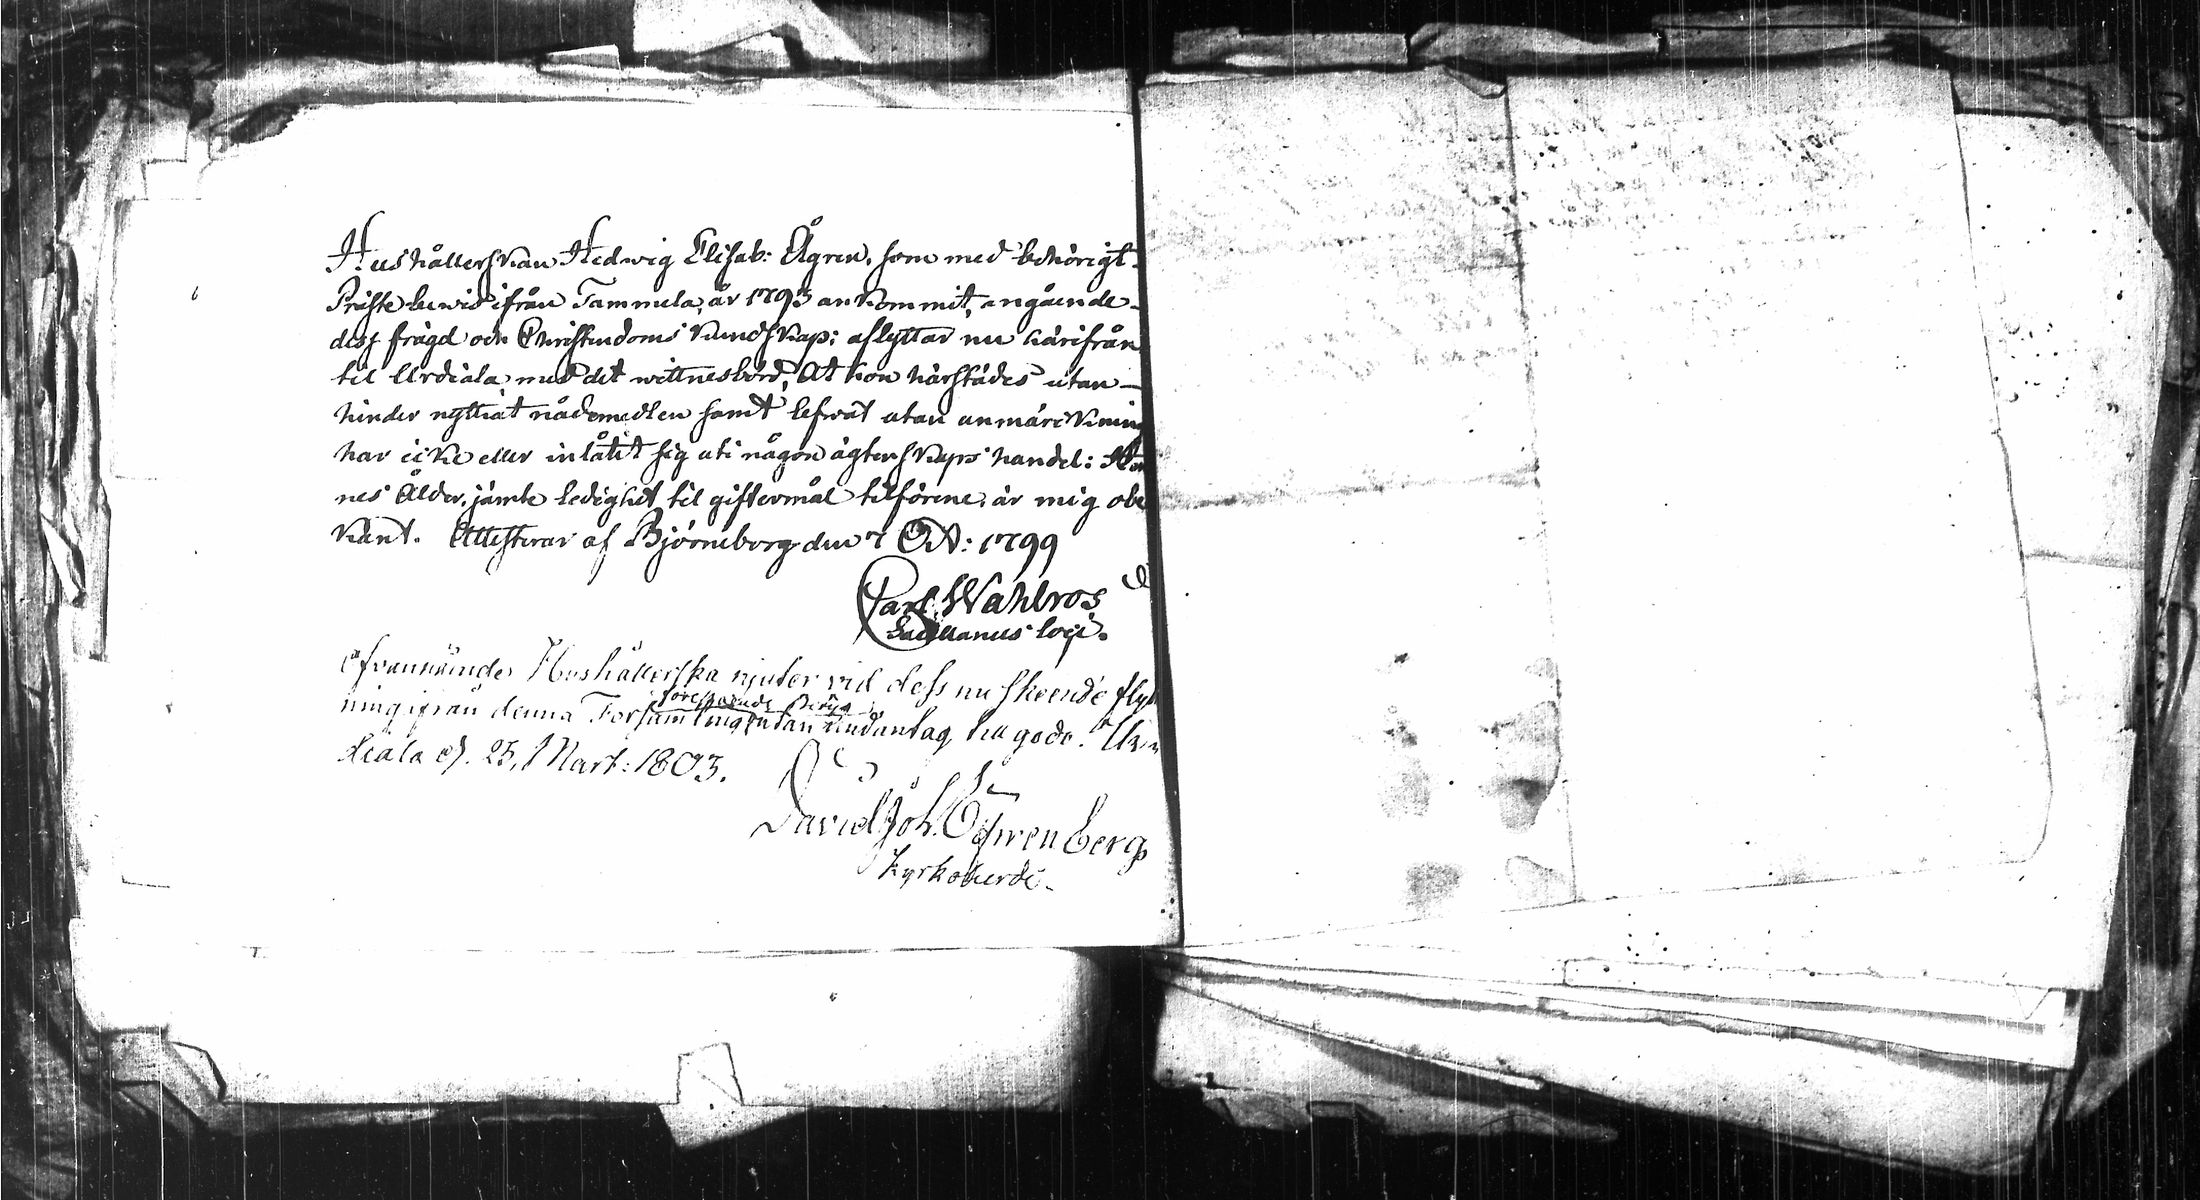 Hushållerskan Hedwig Elisab: Ågren, som med behörigt
Präste bewis ifrån Tammela, år 1793 ankommit, angående
dess frägd och Christendoms kundskap; aflyttar nu härifrån
til Urdiala med det wittnesbörd, At hon härstädes utan
hinder nyttiat nådemedlen samt lefwat utan anmärckning
har icke eller inlåtit sig uti någon ägtenskaps handel: Hen
nes Ålder, jämte ledighet til giftermål tilförene, är mig obe
kant. Attesterar af Björneborg den 7 Oct: 1799
Carl Wahlros
Sacellanus loci.
Ofvannämde Hushållerska njuter vid dess nu skeende flytt
ning ifrån denna Församling förestående Betyg
utan undantag till godo. Ur
diala d. 25 Mart: 1803.
David Joh. Öfwenberg
Kyrkoherde.